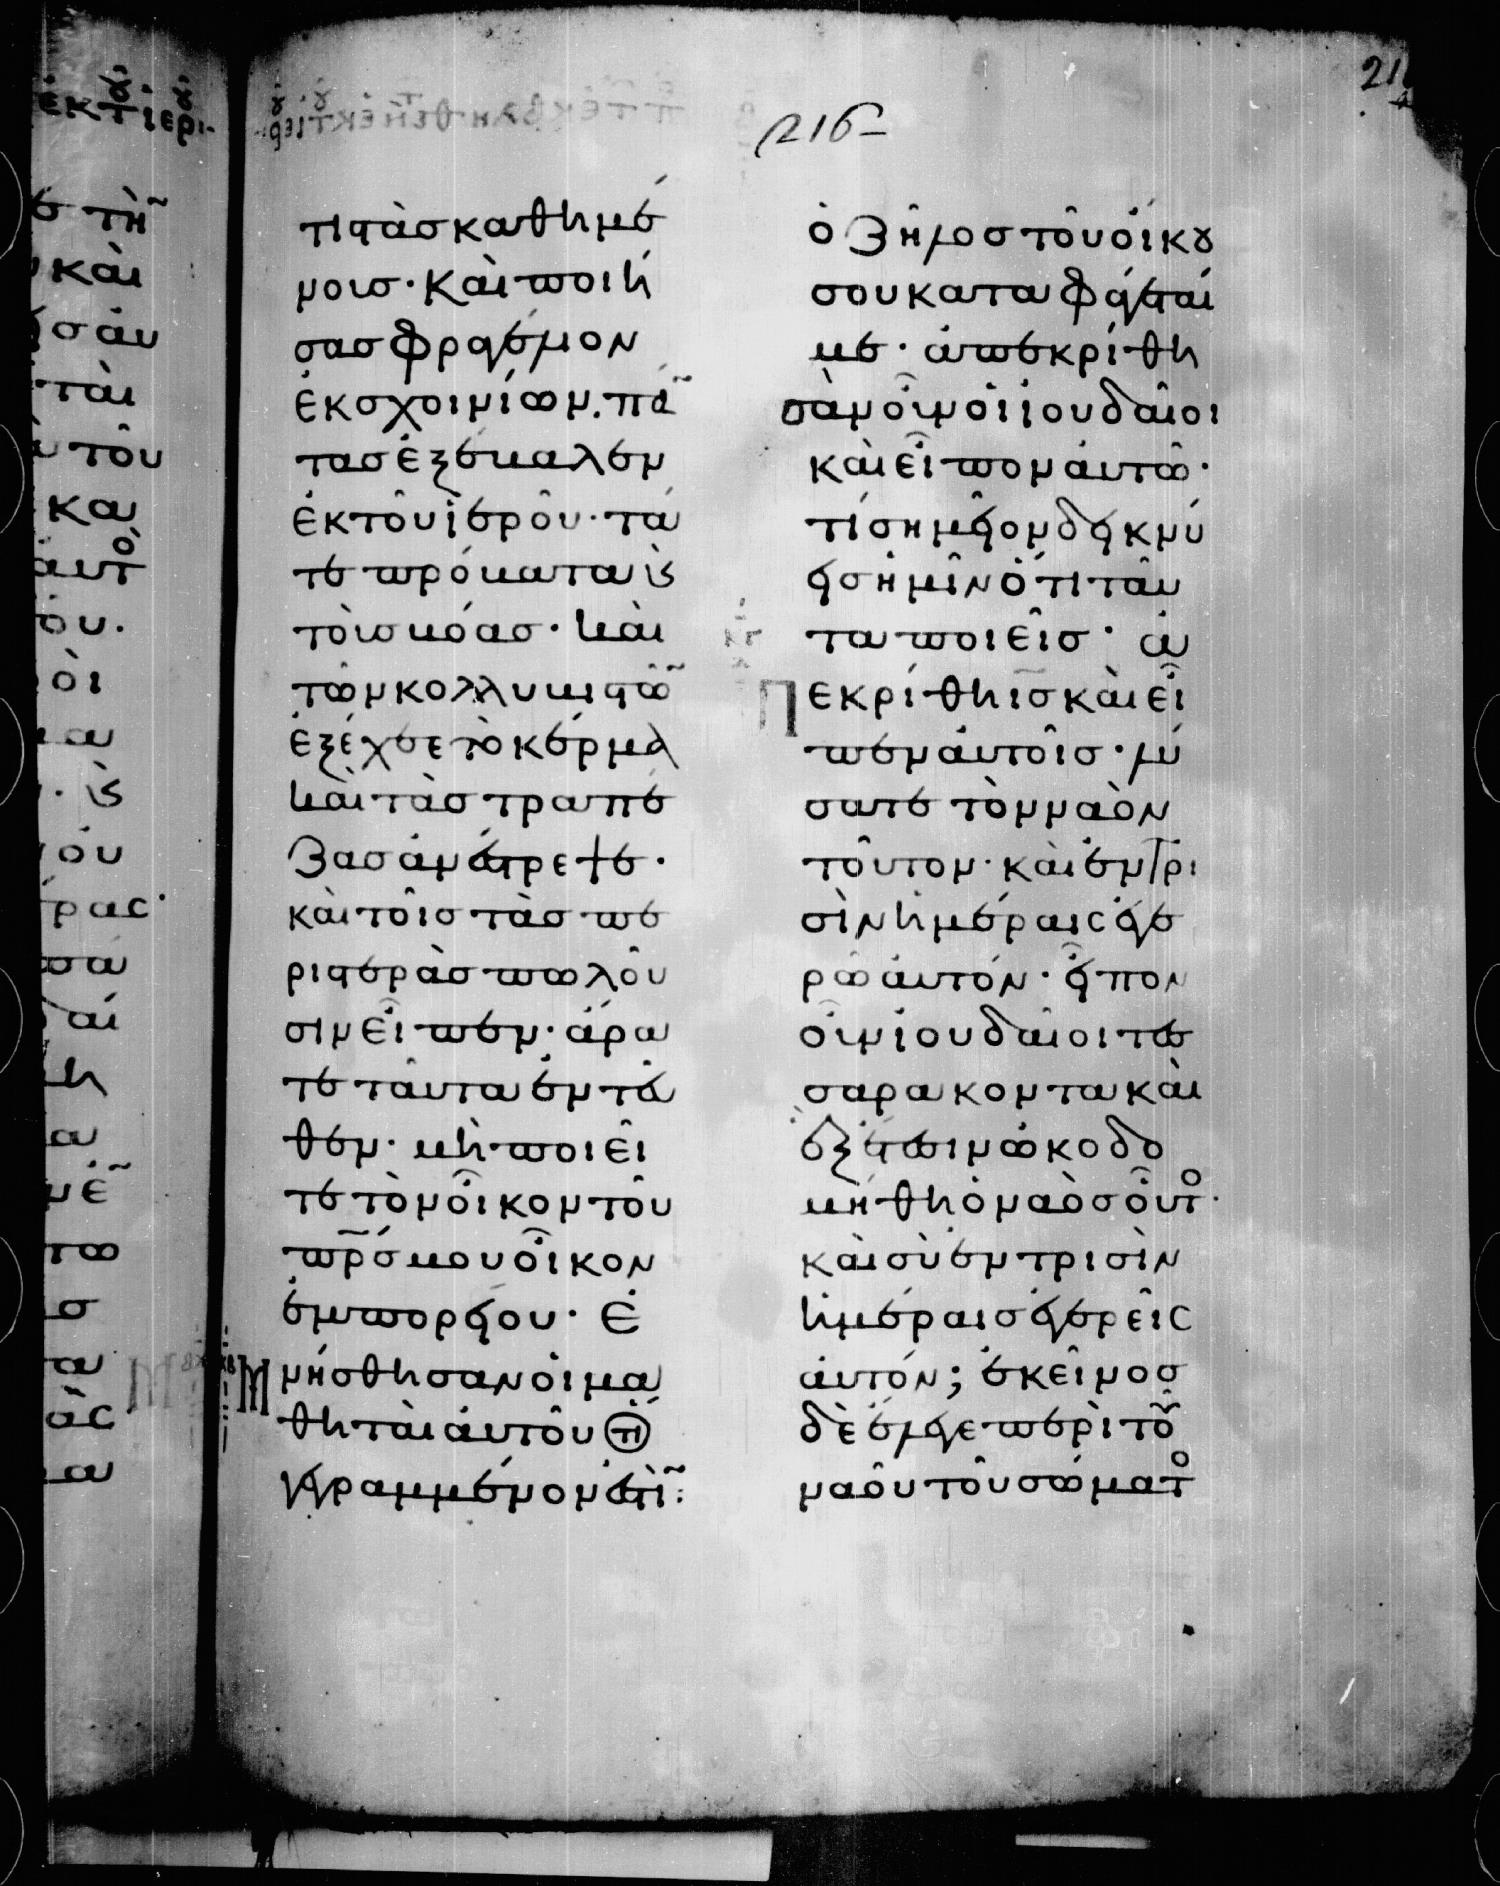 216
216
τιστὰσ καθημέ
νουσ· καὶ ποιή
σασ φραγέλιον
ἐκ σχοινίων. πά
τασ ἐξέβαλεν
ἐκ τοῦ ἱεροῦ· τά
τε πρόβατα κὶ
τοὺσ βόασ· καὶ
τῶν κολλυβιστῶ
ἐξέχεε τὸ κέρμα
καὶ τὰσ τραπέ
ζασ ἀνέστρεψε·
καὶ τοῖσ τὰσ πε
ριστερὰσ πωλοῦ
σιν εἶπεν· ἄρα
τε ταῦτα ἐντεῦ
θεν· μὴ ποιεῖ
τε τὸν οἶκον τοῦ
πρσ μου οἶκον
ἐμπορίου· Ἐ
μνήσθησαν οἱ μα
θηταὶ αὐτοῦ ὅτι
γεγραμμένον ἐστὶ:
ὁ ζῆλοσ τοῦ οἴκου
σου καταφάγεταί
με· ἀπεκρίθη
σαν οὖν οἱ ἰουδαῖοι
καὶ εἶπον αὐτῶ·
τί σημεῖον δεικνύ
εισ ἡμῖν ὅτι ταῦ
τα ποιεῖσ· ἀ
Πεκρίθη ισ καὶ εἶ
πεν αὐτοῖσ· λύ
σατε τὸν ναὸν
τοῦτον· καὶ ἐν τρι
σὶν ἡμέραισ ἐγε
ρῶ αὐτόν· εἶπον
οὖν ἰουδαῖοι τεσ
σαρακοντα καὶ
ἓξ ἔτεσιν ὠκοδο
μήθη ὁ ναὸσ οὗτο·
καὶ σὺ ἐν τρισὶν
ἡμέραισ ἐγερεῖσ
αὐτόν; ἐκεῖνοσ
δὲ ἔλεγε περὶ τοῦ
ναοῦ τοῦ σώματο